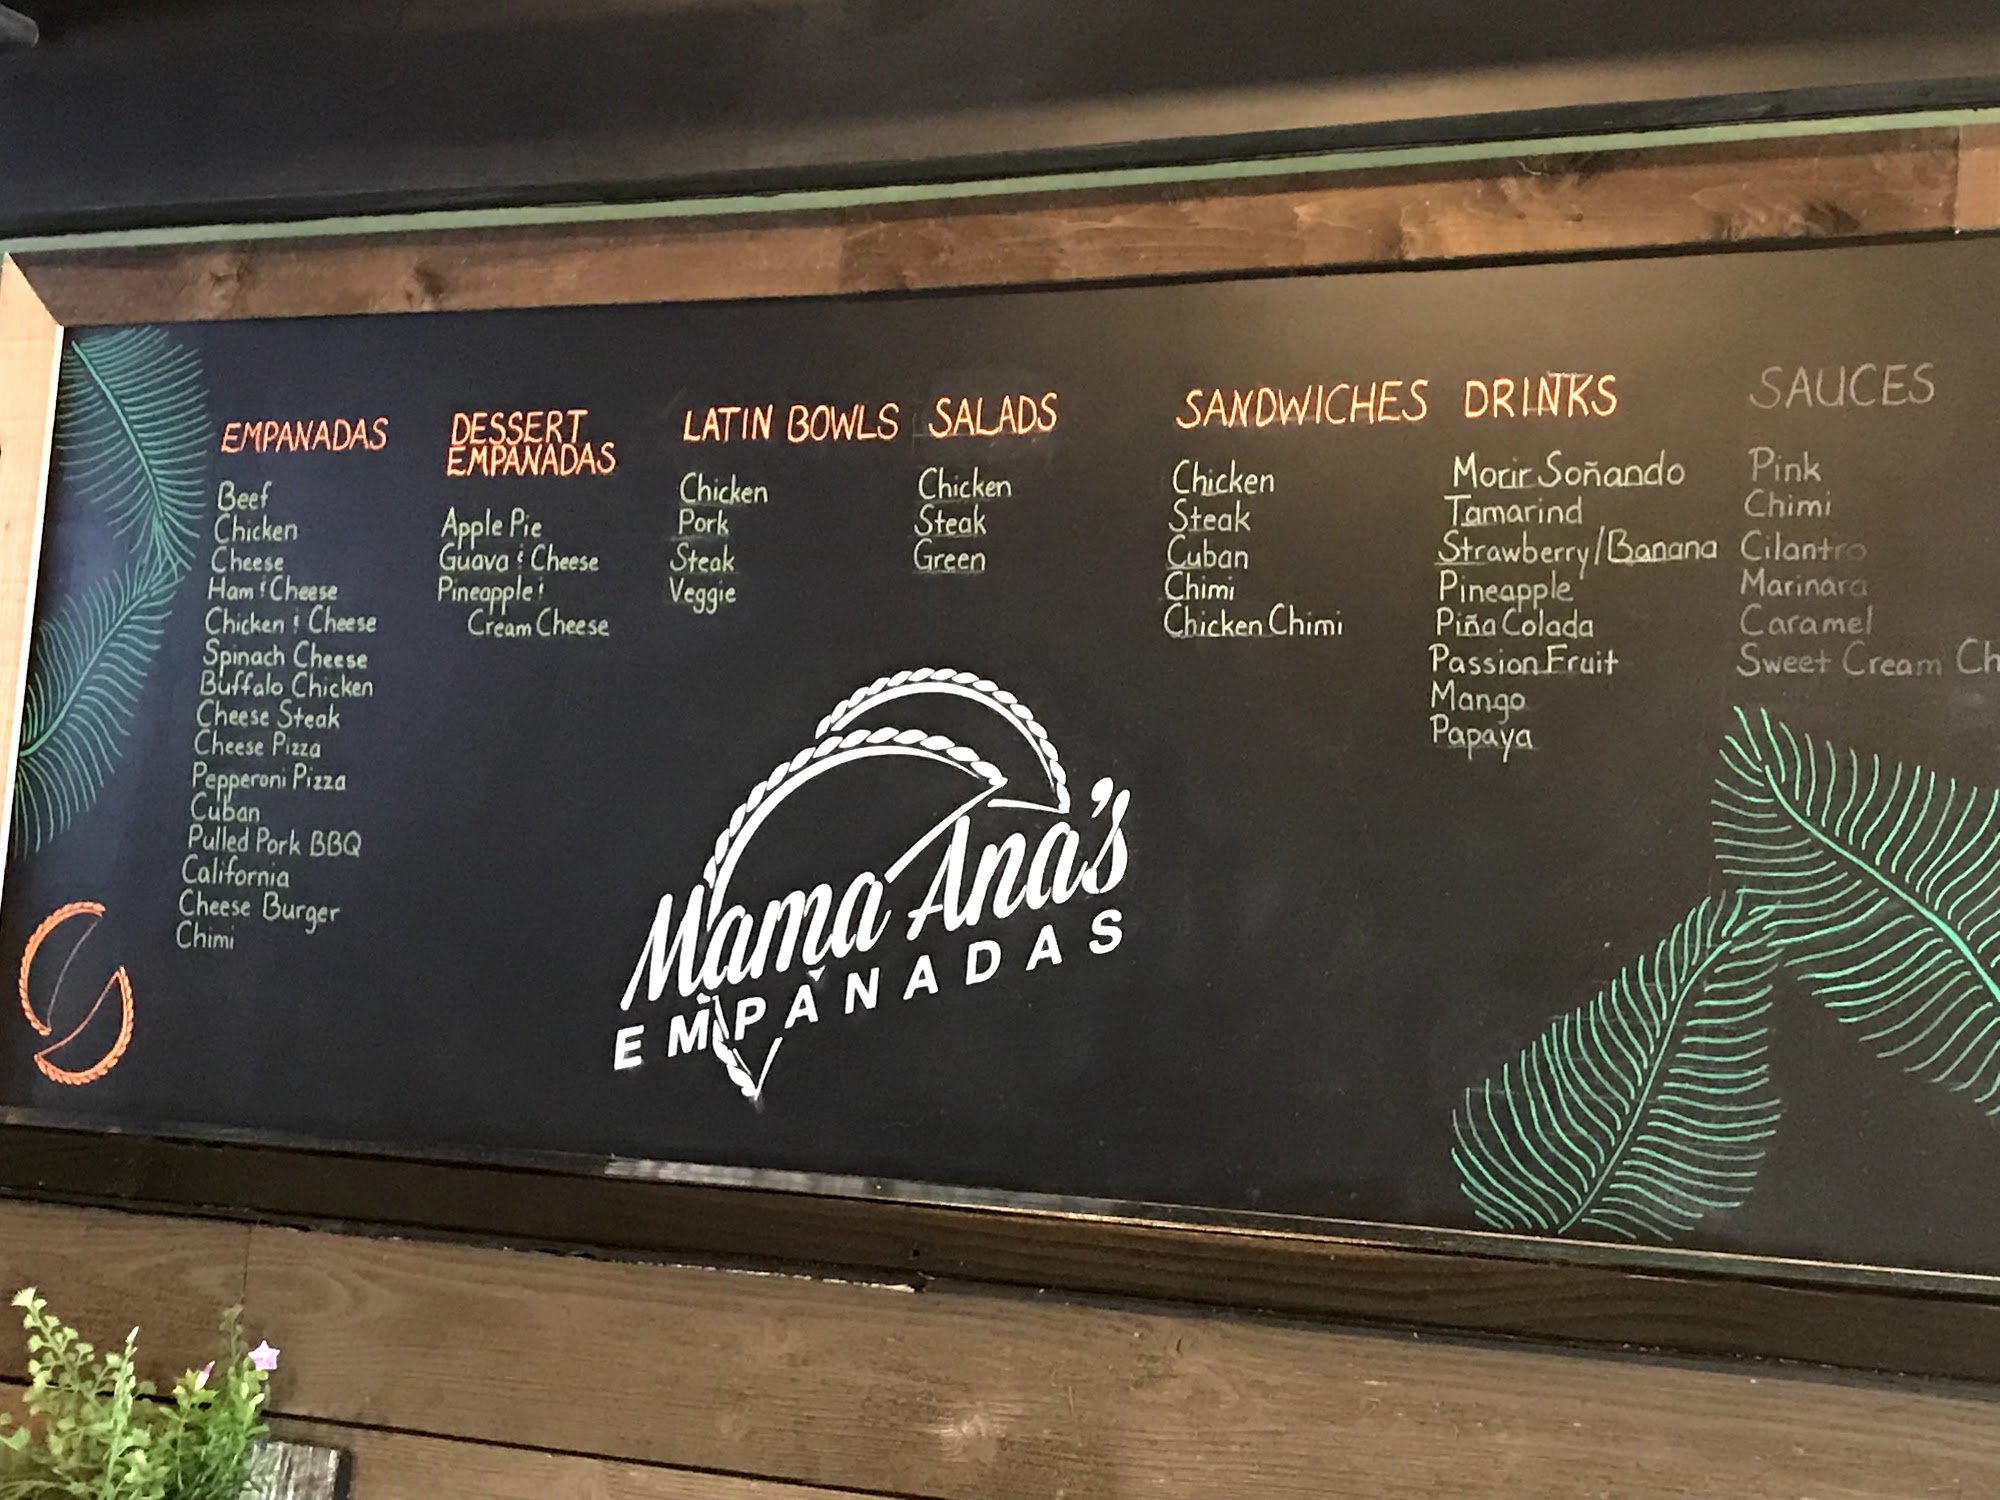 EMPANADAS
Beef
Chicken
Cheese
Ham & Cheese
Chicken & Cheese
Spinach Cheese
Buffalo Chicken
Cheese Steak
Cheese Pizza
Pepperoni Pizza
Cuban
Pulled Pork BBQ
California
Cheese Burger
Chimi
DESSERT
EMPANADAS
Apple Pie
Guava & Cheese
Pineapple &
Cream Cheese
LATIN BOWLS
Chicken
Pork
Steak
Veggie
SALADS
Chicken
Steak
Green
SANDWICHES
Chicken
Steak
Cuban
Chimi
Chicken Chimi
DRINKS
Morir Soñando
Tamarind
Strawberry/Banana
Pineapple
Piña Colada
Passion Fruit
Mango
Papaya
SAUCES
Pink
Chimi
Cilantro
Marinara
Caramel
Sweet Cream
Mama Ana's
EMPANADAS